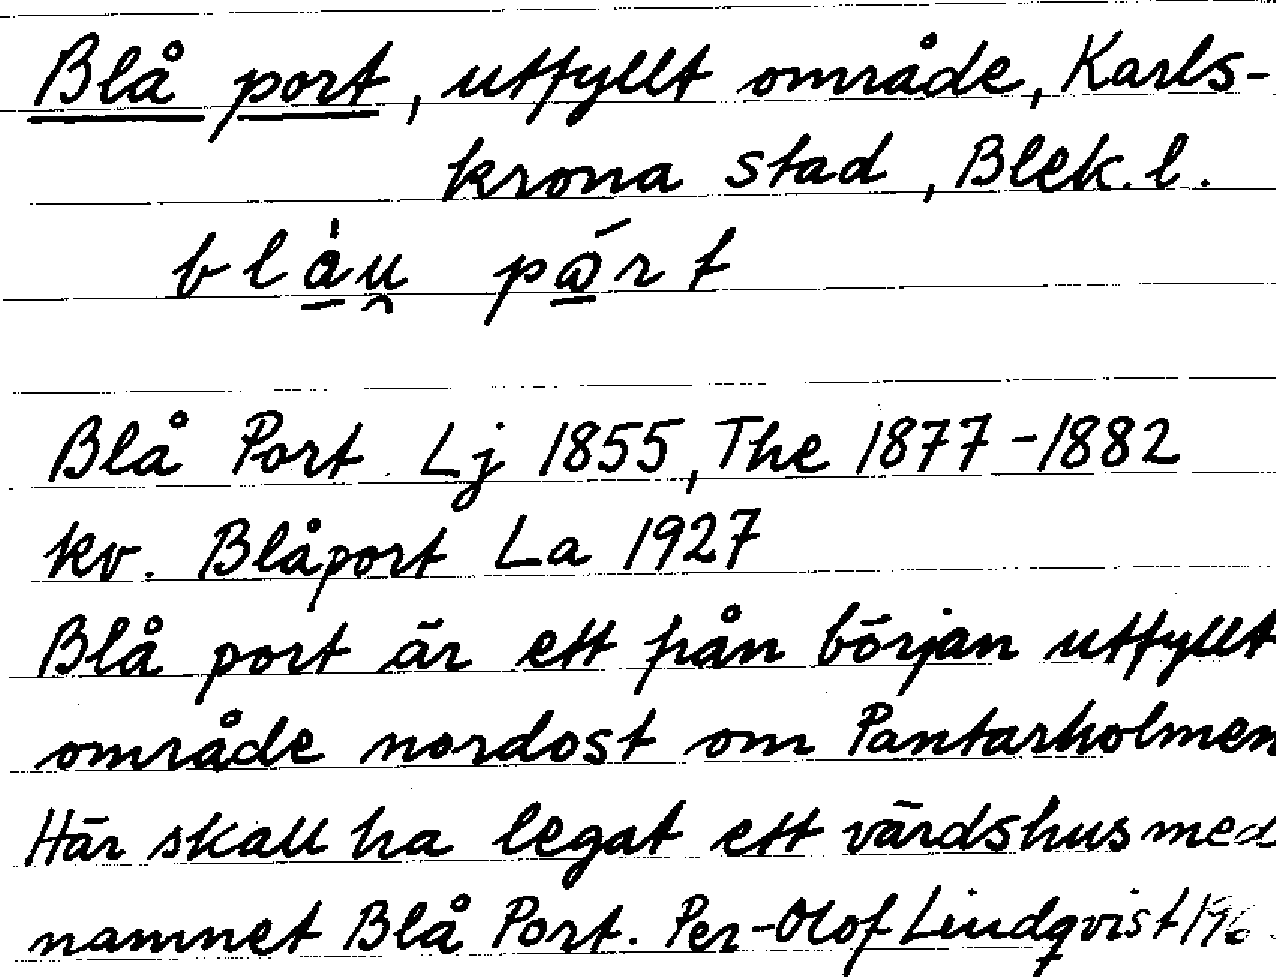 Blå port, utfyllt område, Karls-
krona stad, Blek. l.
blàu pårt
Blå Port Lj 1855, The 1877-1882
kv. Blåport La 1927
Blå port är ett från början utfyllt
område nordost om Pantarholmen
Här skall ha legat ett värdshus med
namnet Blå Port. Per-Olof Lindqvist